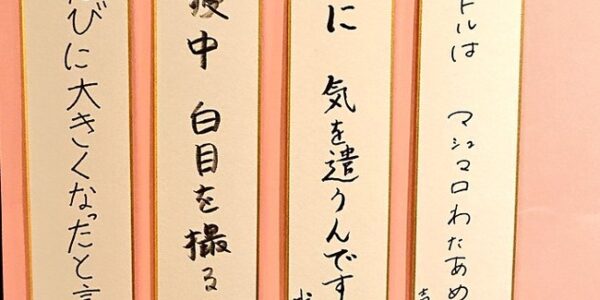 トルは マシュマロわたあめ
に 気を遣うんです
中 白目を撮る
びに大きくなったと言